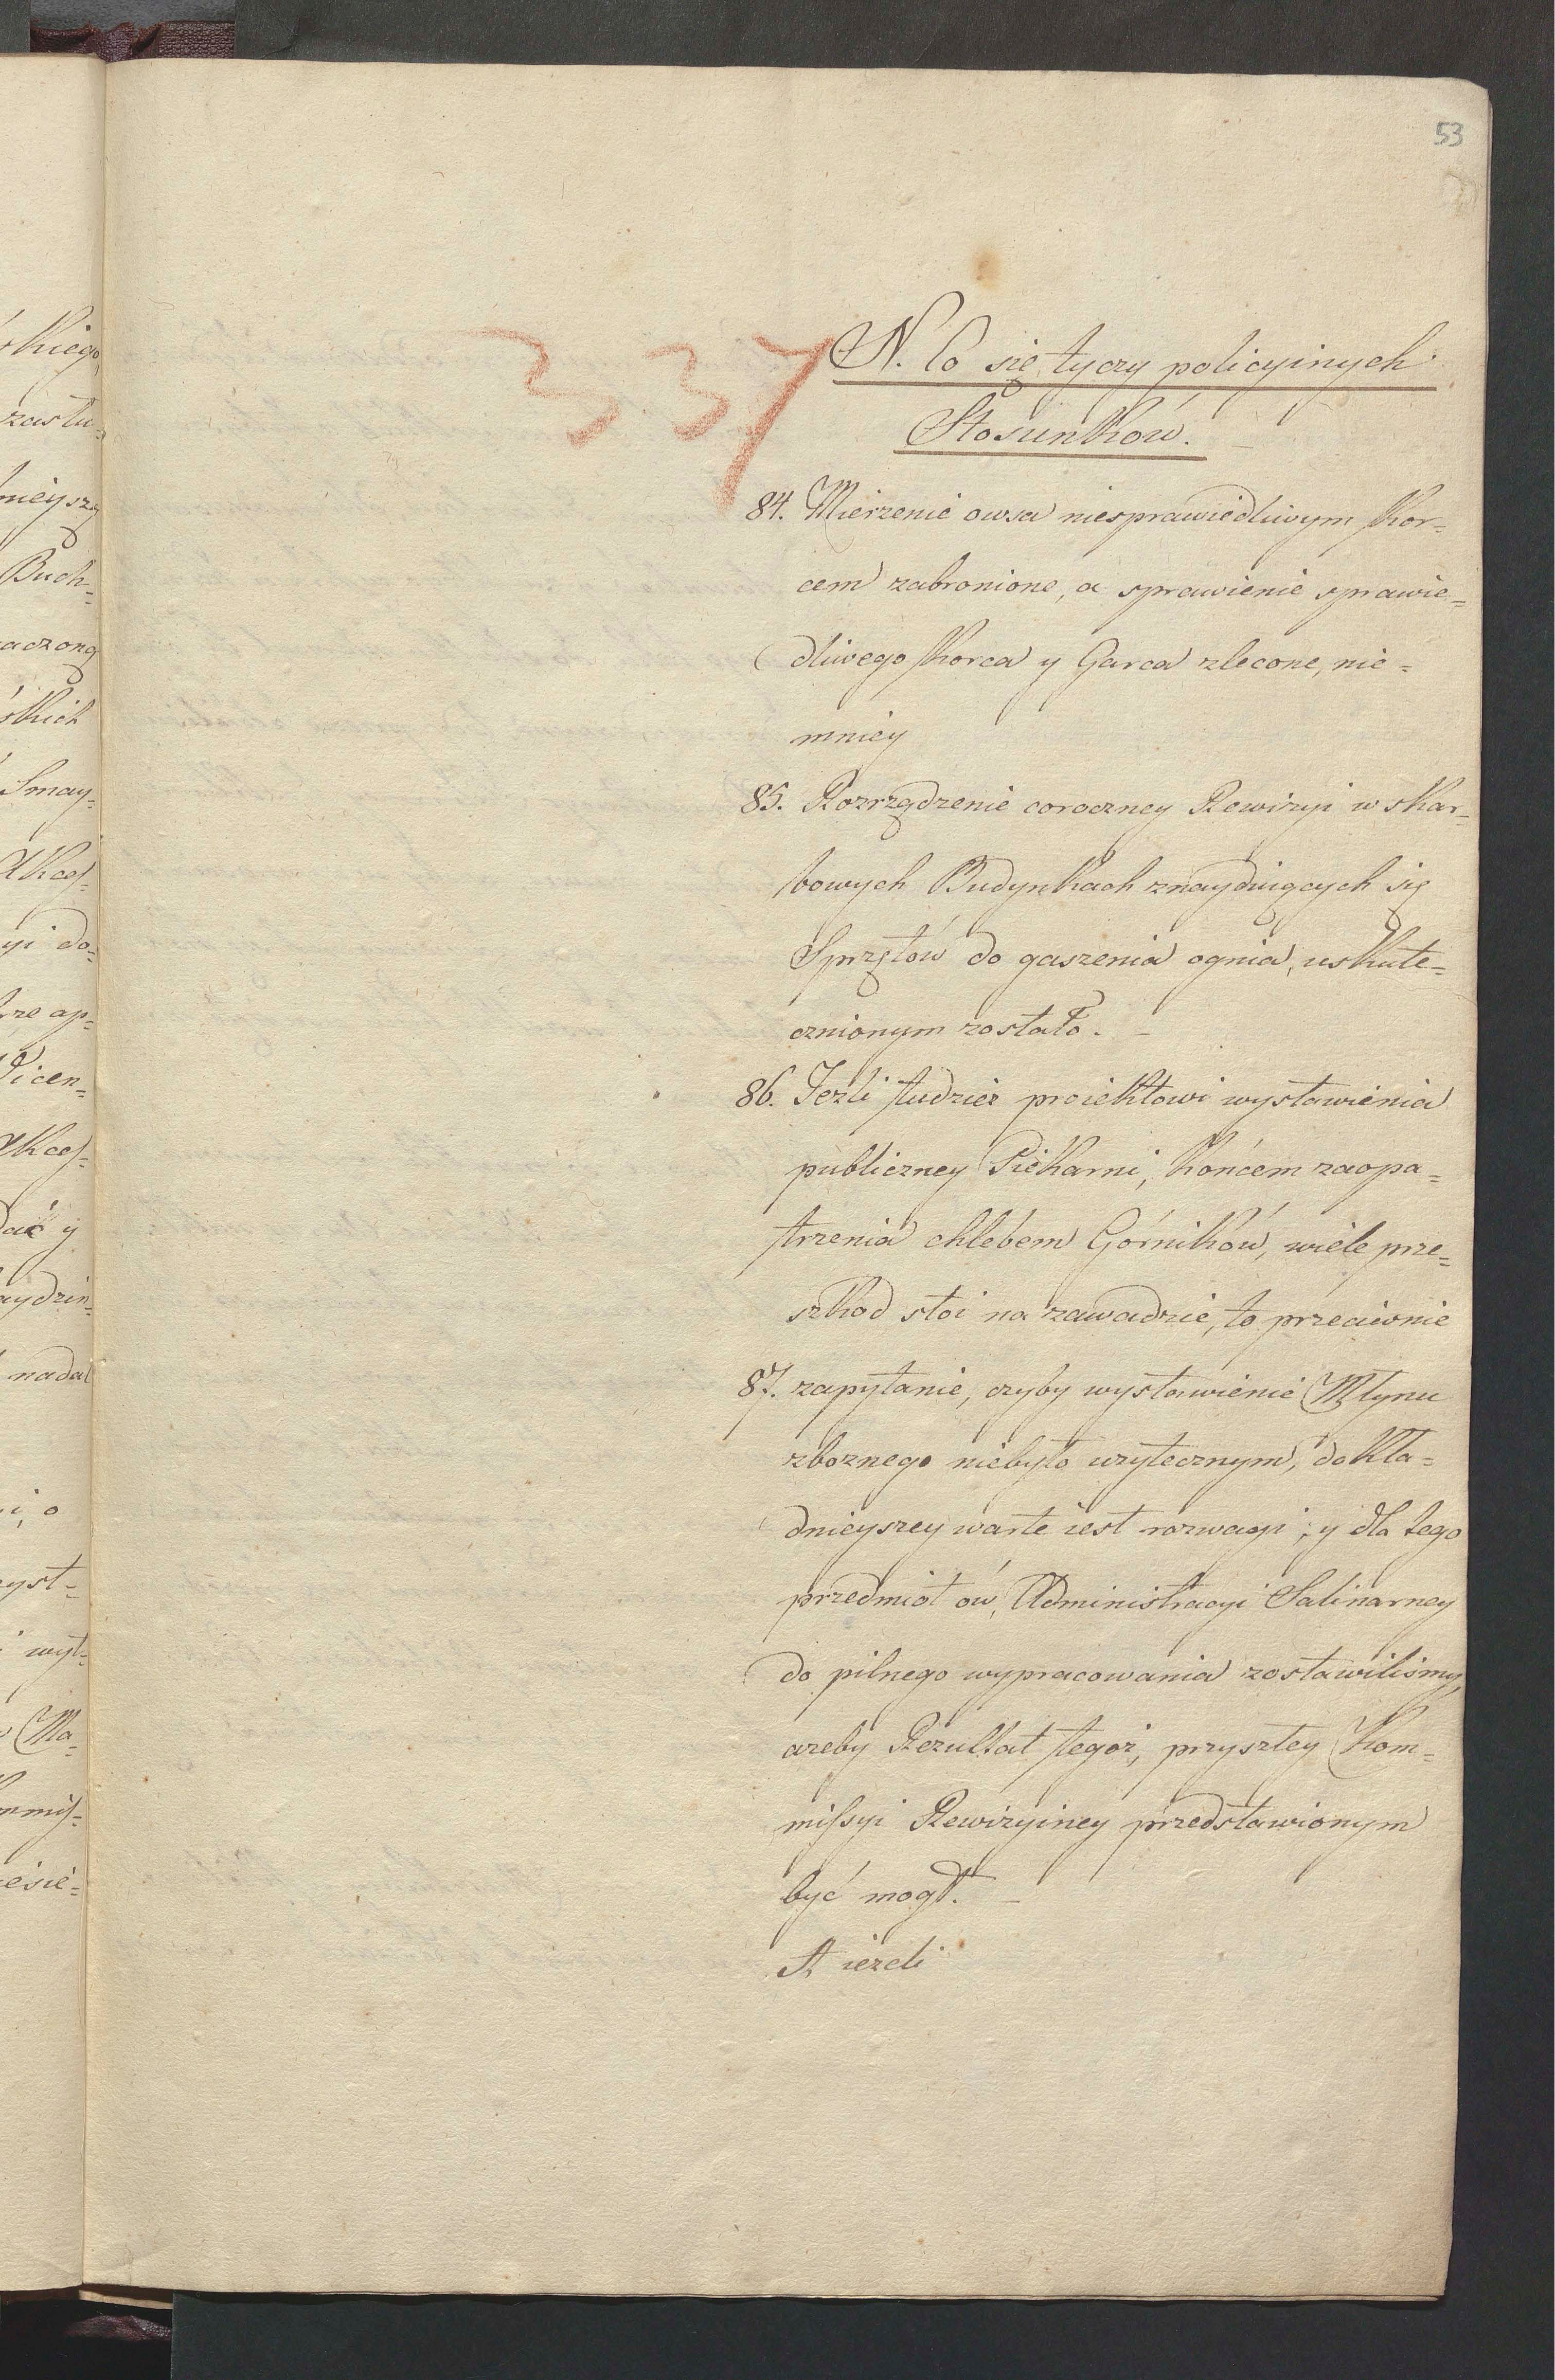 53
337
N. Co się tyczy policyinych
Stósunków.
84. Mierzenie owsa niesprawiedliwym Kor-
cem zabronione, a sprawienie sprawie=
dliwego Korca y Garca zlecone, nie=
mniey
85. Rozrządzenie coroczney Rewizyi w skar-
bowych Budynkach znayduiących się
Sprzętów do gaszenia ognia, uskute=
cznionym zostało. –
86. Jeżli tudzież proiektowi wystawienia
publiczney Piekarni, końcem zaopa=
trzenia chlebem Górników, wiele prze=
szkod stoi na zawadzie, to przeciwnie
87. zapytanie, czyby wystawienie Młynu
zbożnego niebyło użytecznym, dokła=
dnieyszey warte iest rozwagi; y dla tego
przedmiot ów, Administracyi Salinarney
do pilnego wypracowania zostawiliśmy,
ażeby Rezultat tegoż, przyszłey Kom=
missyi Rewizyiney przedstawionym
być mogł. –
A ieżeli
kiego,
zastu=
mieyszy
Buch=
aczoną
skich
Smay=
Akces=
yi do=
rze ap=
Vicen=
Akces=
dać y
aydzin=
nadal
i, o
yst=
wyt=
Ma=
mmis=
esie=